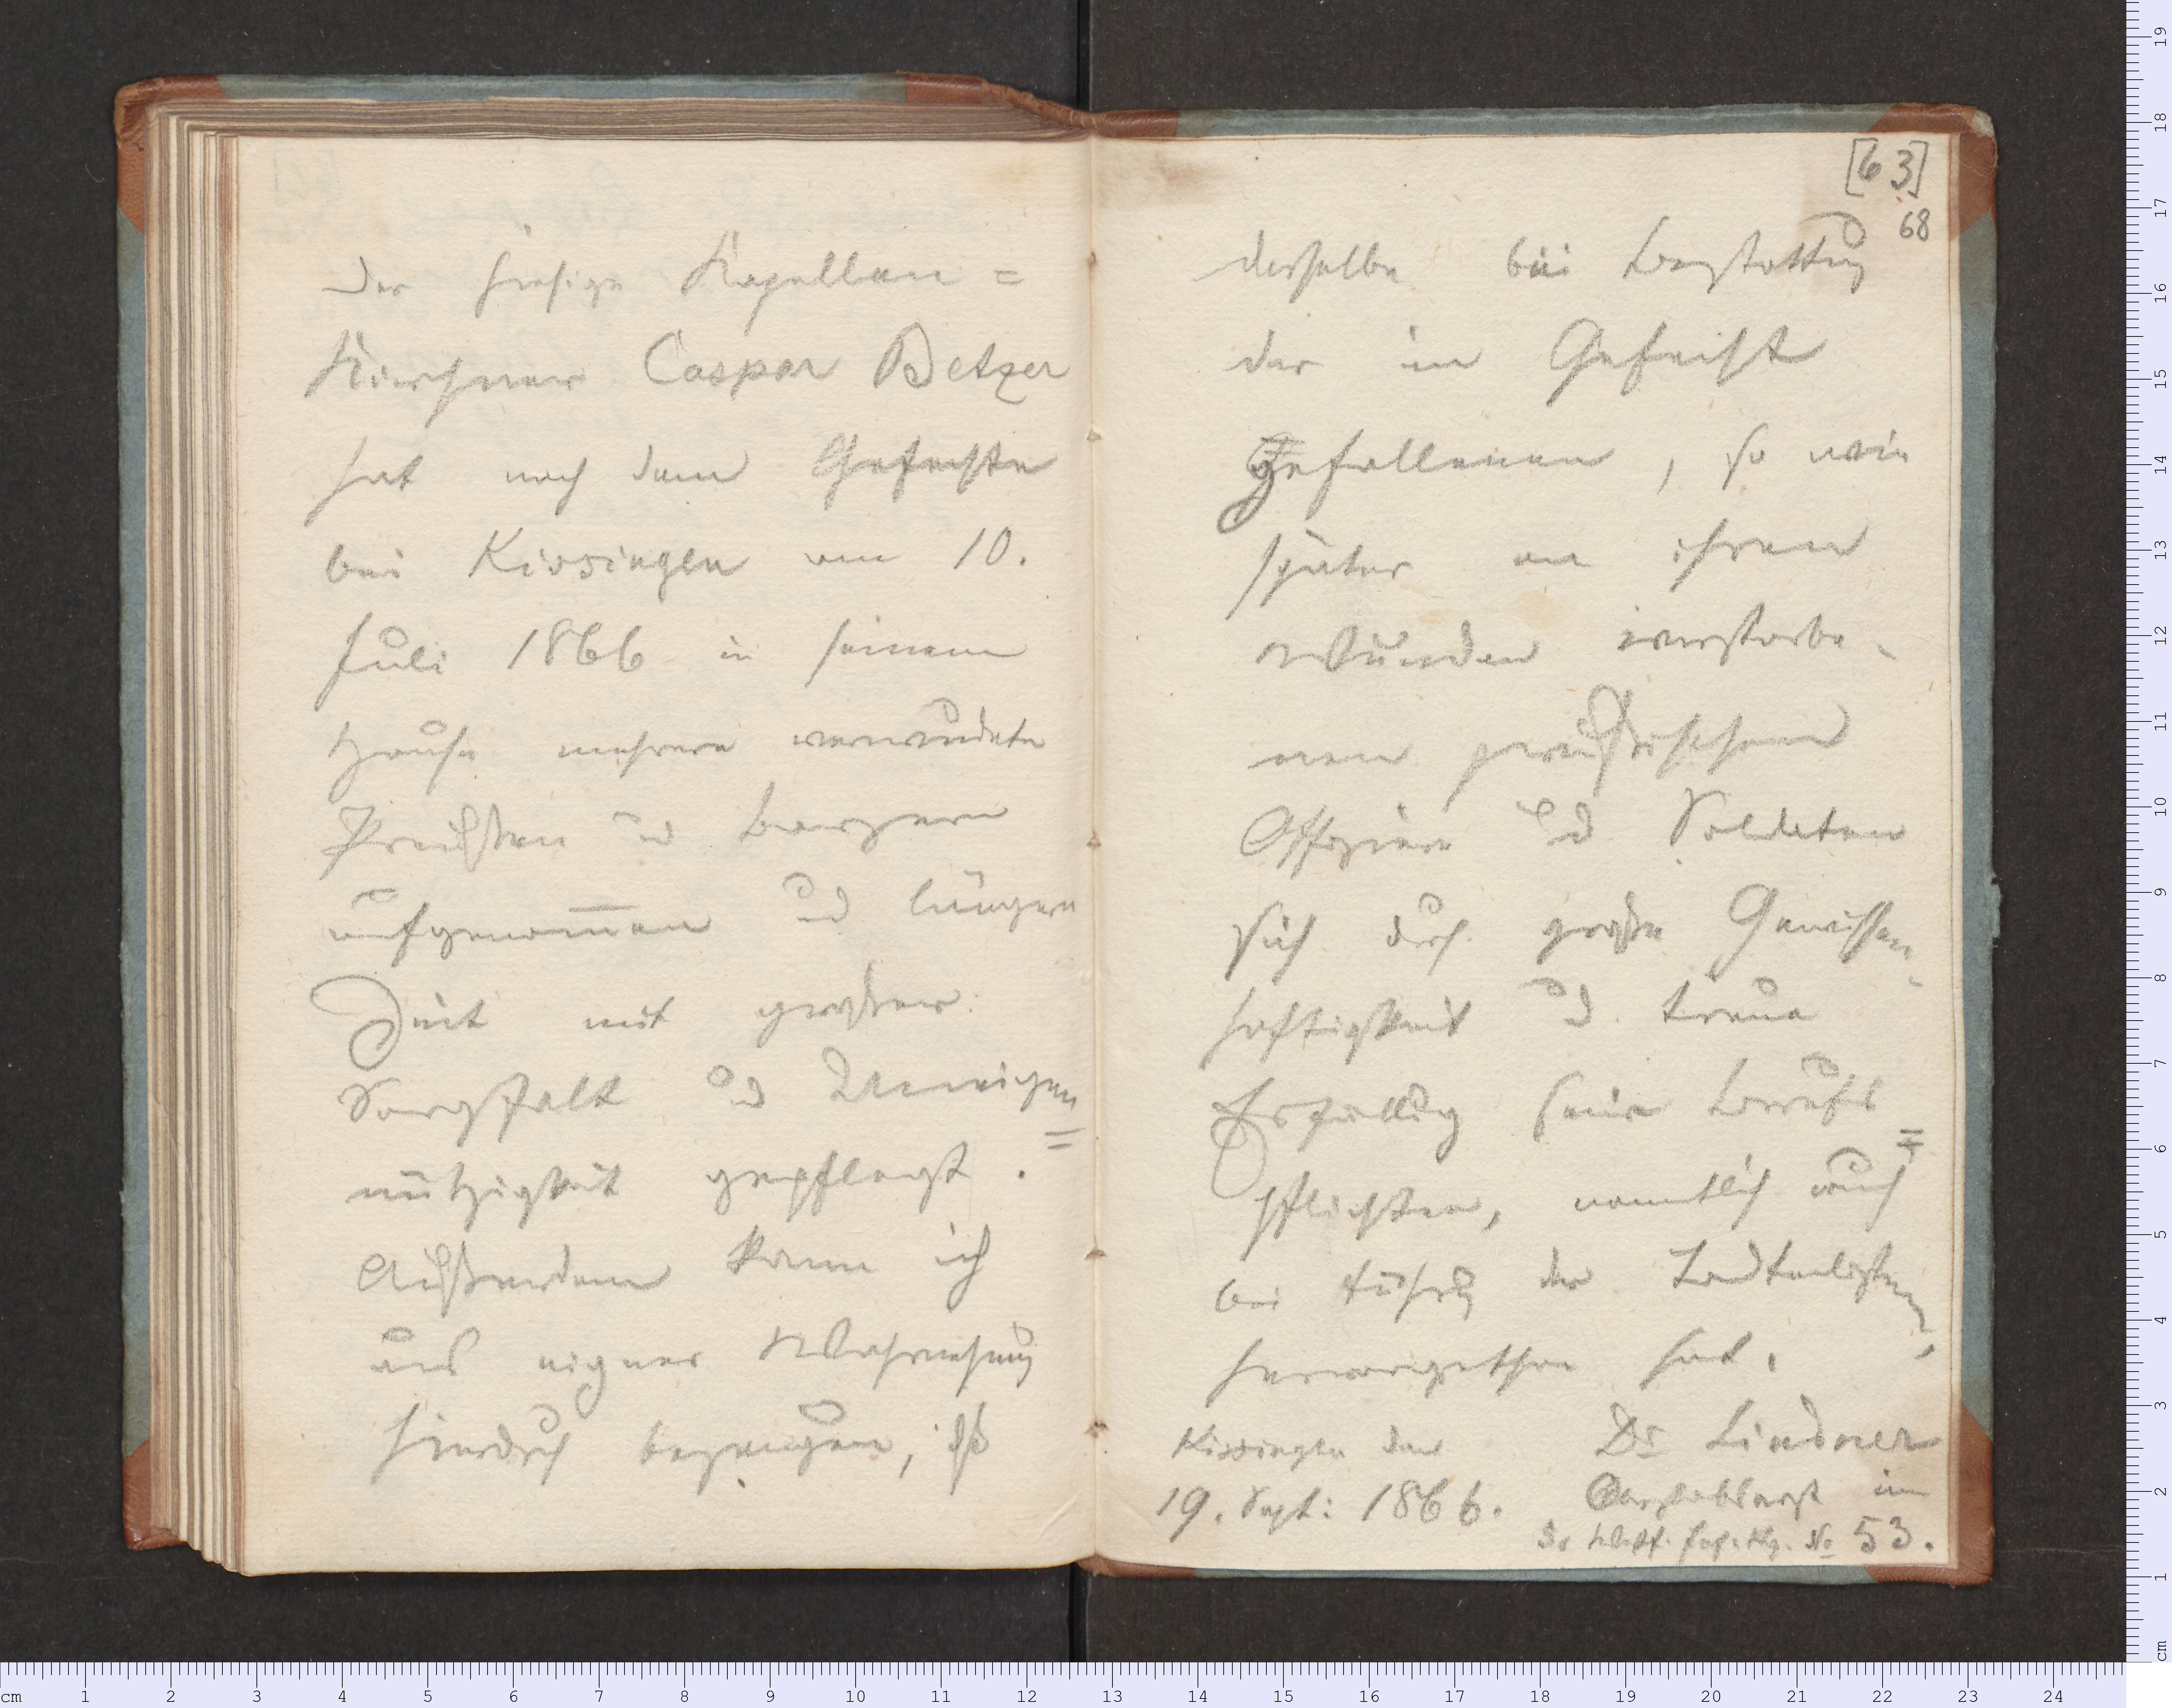 Der hiesige Kapellen =
Kirchner Caspar Betzer
hat nach dem Gefechte
bei Kissingen am 10.
Juli 1866 in seinem
Hause mehrere verwundete
Preußen und Bayern
aufgenom̅en und längere
Zeit mit großer
Sorgfalt und Uneigen
=
nützigkeit gepflegt.
Außerdem kann ich
aus eigner Wahrnehmung
hierdrch bezeugen, dß
[63]
68
derselbe bei Bestattung
der im Gefecht
gefallenen, so wie
später an ihren
Wunden verstorbe-
nen preußischen
Offiziere und Soldaten
sich durch große Gewissen-
haftigkeit und treue
Erfüllung seiner Berufs
=
pflichten, namentlich auch
bei Führung der Todtenlisten,
hervorgethan hat.
Kissingen den
19. Sept: 1866.
Dr Lindner
Oberstabsarzt im
Inf. Rg. No 53.